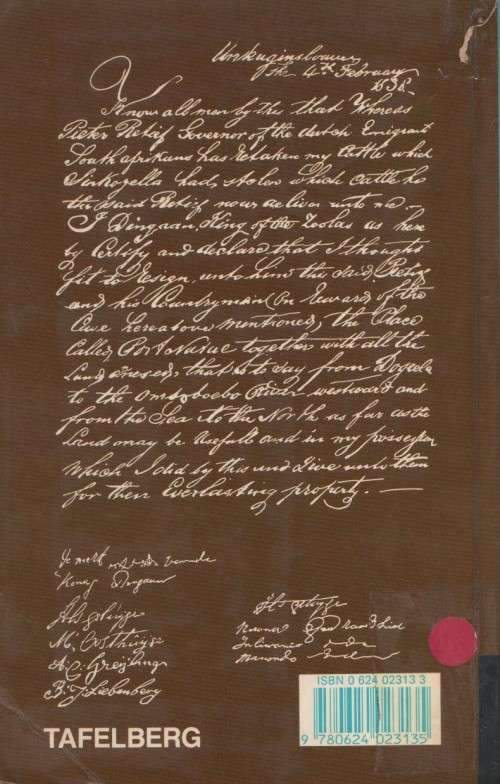 Unkunginsloave
the 4th February
1838
Know all men by this that Whereas
Pieter Retief Governor of the dutch Emigrant
South afrikans has Retaken my Cattle which
Sinkonyella had stolen which cattle he
the said Retief now deliver unto me —
I Dingaan, King of the Zoolas as here
by Certify and declare that I thought
fit to Resign, unto him the said Retief
and his Countrymen (on Reward of the
Case hereabove mentioned, the Place
Called, Port Natal together with all the
Land annexed, that is to say from Dogeela
to the Omsoboebo River westward and
from the Sea to the North as far as the
Land may be Usefull and in my possession
Which I did by this and Give unto them
for their Everlasting property. —
De merk van de
Koning Dingaan
M. Oosthuyze
A. C. Greyling
B. J. Liebenberg
Nwara Groot Raad Lid
Juliwanie do
Manondo
ISBN 0 624 02313 3
9 780624 023135
TAFELBERG